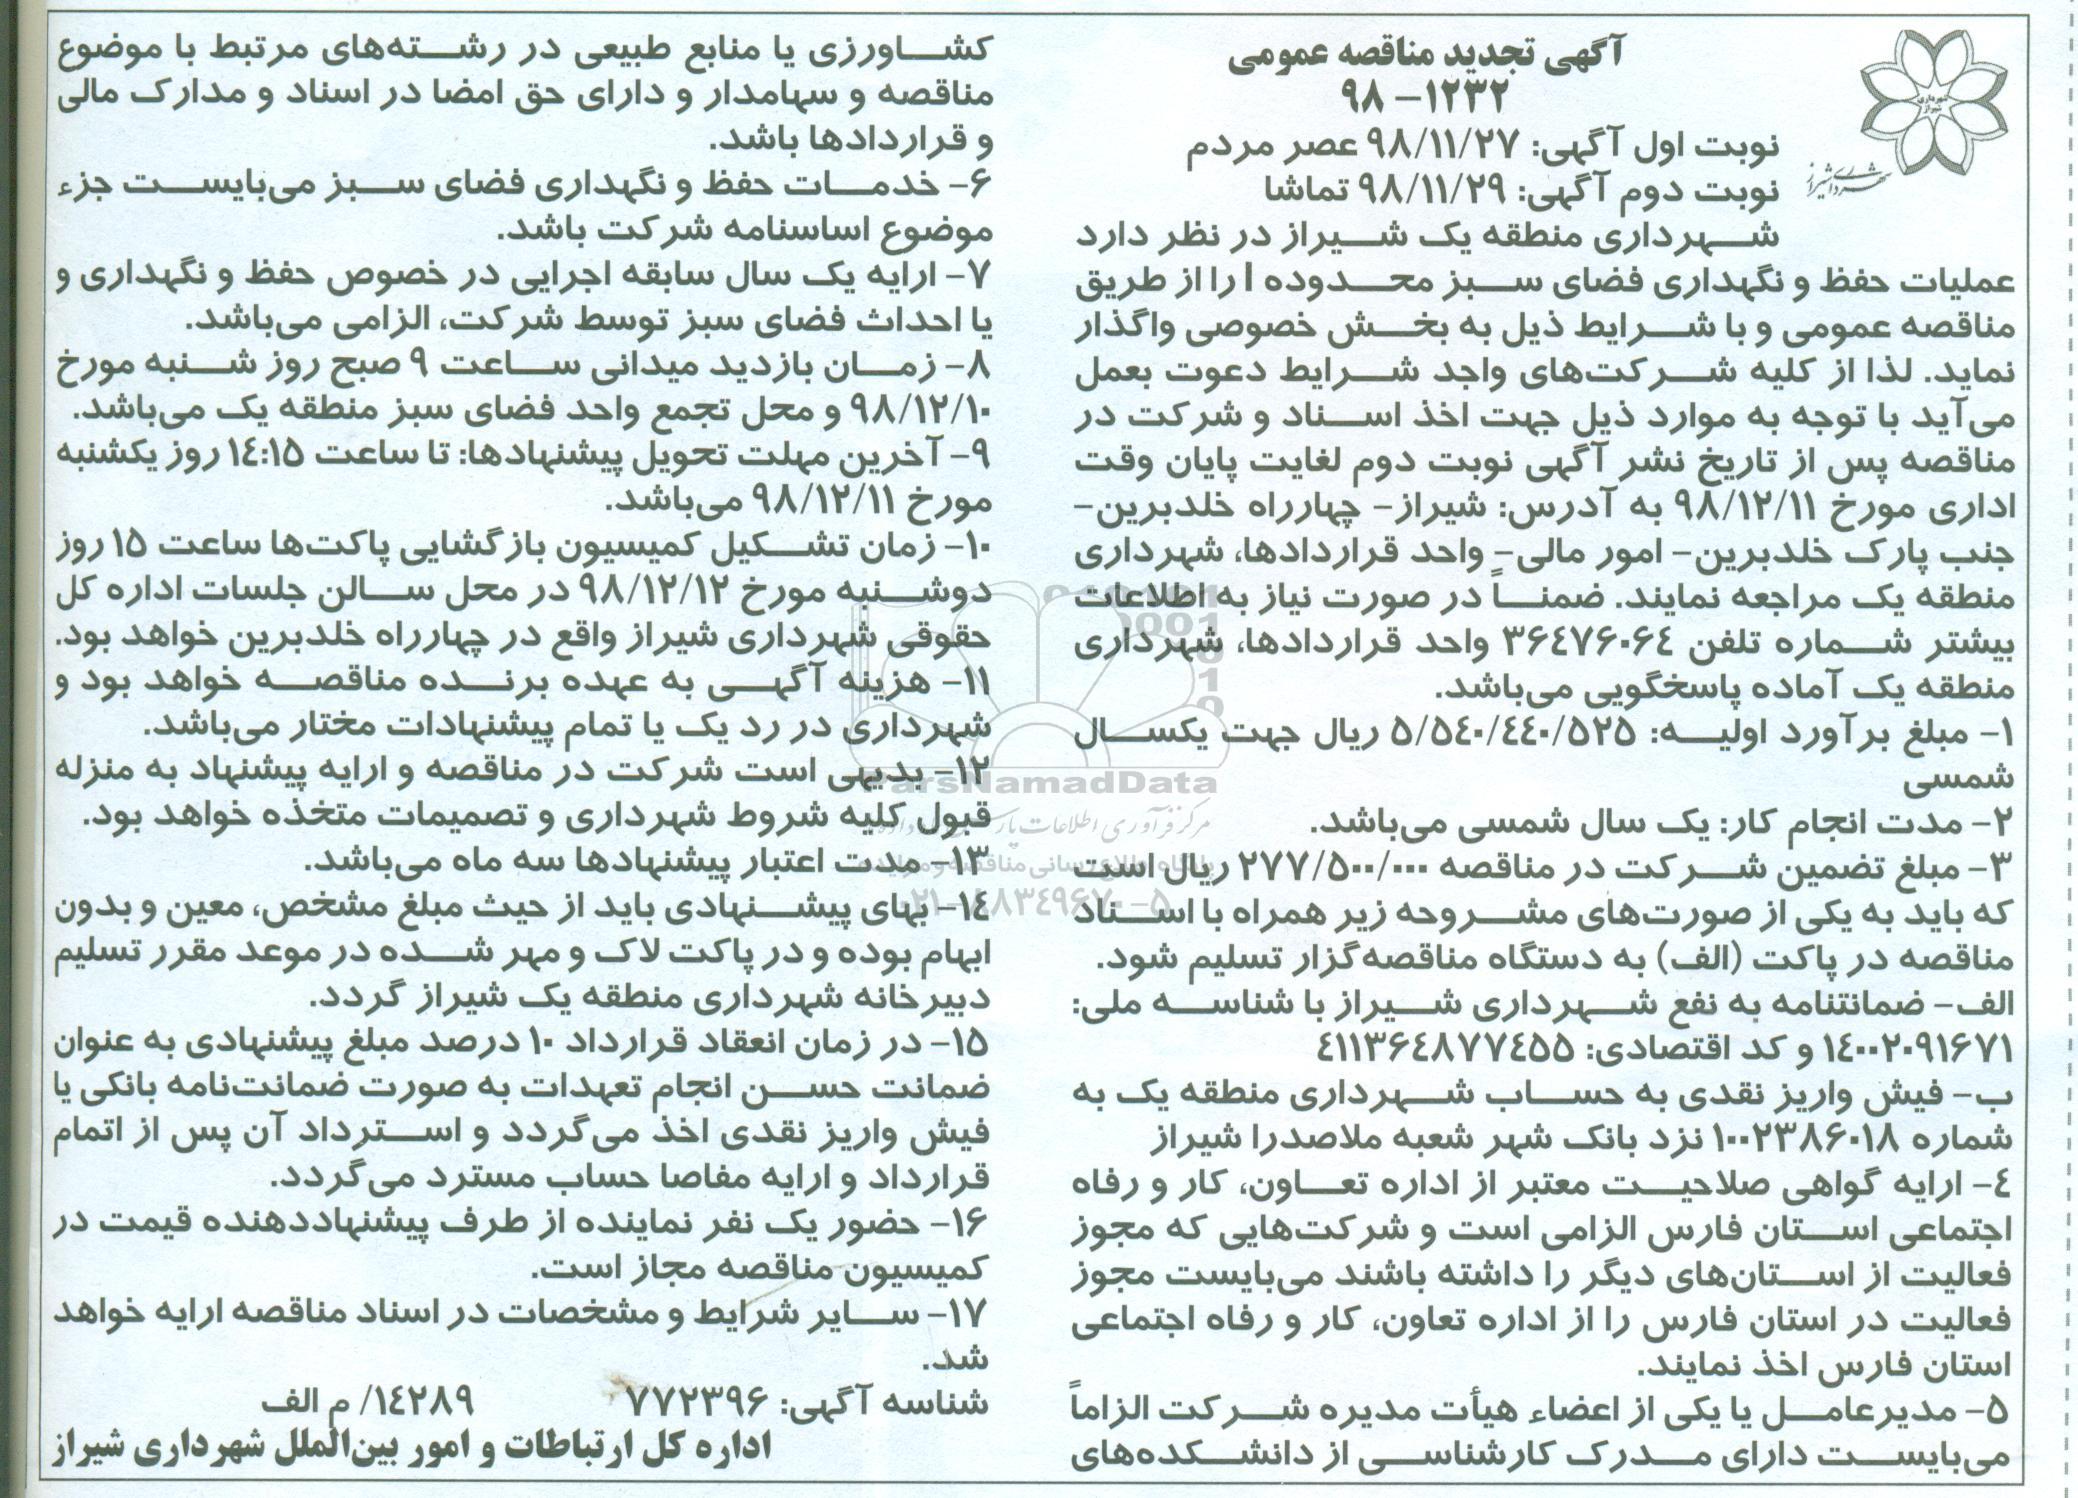 آگهی تجدید مناقصه عمومی
۹۸ -۱۲۳۲
نوبت اول آگهی: ۹۸/۱۱/۲۷ عصر مردم
نوبت دوم آگهی: ۹۸/۱۱/۲۹ تماشا
شهرداری شیراز
شهرداری شیراز
شهرداری منطقه یک شیراز در نظر دارد
عملیات حفظ و نگهداری فضای سبز محدوده ۱ را از طریق
مناقصه عمومی و با شرایط ذیل به بخش خصوصی واگذار
نماید. لذا از کلیه شرکت‌های واجد شرایط دعوت بعمل
می‌آید با توجه به موارد ذیل جهت اخذ اسناد و شرکت در
مناقصه پس از تاریخ نشر آگهی نوبت دوم لغایت پایان وقت
اداری مورخ ۹۸/۱۲/۱۱ به آدرس: شیراز- چهارراه خلدبرین-
جنب پارک خلدبرین- امور مالی- واحد قراردادها، شهرداری
منطقه یک مراجعه نمایند. ضمناً در صورت نیاز به اطلاعات
بیشتر شماره تلفن ۳۶۴۷۶۰۶۴ واحد قراردادها، شهرداری
منطقه یک آماده پاسخگویی می‌باشد.
۱- مبلغ برآورد اولیه: ۵/۵۴۰/۴۴۰/۵۲۵ ریال جهت یکسال
شمسی
۲- مدت انجام کار: یک سال شمسی می‌باشد.
۳- مبلغ تضمین شرکت در مناقصه ۲۷۷/۵۰۰/۰۰۰ ریال است
که باید به یکی از صورت‌های مشروحه زیر همراه با اسناد
مناقصه در پاکت (الف) به دستگاه مناقصه‌گزار تسلیم شود.
الف- ضمانتنامه به نفع شهرداری شیراز با شناسه ملی:
۱۴۰۰۲۰۹۱۶۷۱ و کد اقتصادی: ۴۱۱۳۶۴۸۷۷۴۵۵
ب- فیش واریز نقدی به حساب شهرداری منطقه یک به
شماره ۱۰۰۲۳۸۶۰۱۸ نزد بانک شهر شعبه ملاصدرا شیراز
۴- ارایه گواهی صلاحیت معتبر از اداره تعاون، کار و رفاه
اجتماعی استان فارس الزامی است و شرکت‌هایی که مجوز
فعالیت از استان‌های دیگر را داشته باشند می‌بایست مجوز
فعالیت در استان فارس را از اداره تعاون، کار و رفاه اجتماعی
استان فارس اخذ نمایند.
۵- مدیرعامل یا یکی از اعضاء هیأت مدیره شرکت الزاماً
می‌بایست دارای مدرک کارشناسی از دانشکده‌های
کشاورزی یا منابع طبیعی در رشته‌های مرتبط با موضوع
مناقصه و سهامدار و دارای حق امضا در اسناد و مدارک مالی
و قراردادها باشد.
۶- خدمات حفظ و نگهداری فضای سبز می‌بایست جزء
موضوع اساسنامه شرکت باشد.
۷- ارایه یک سال سابقه اجرایی در خصوص حفظ و نگهداری و
یا احداث فضای سبز توسط شرکت، الزامی می‌باشد.
۸- زمان بازدید میدانی ساعت ۹ صبح روز شنبه مورخ
۹۸/۱۲/۱۰ و محل تجمع واحد فضای سبز منطقه یک می‌باشد.
۹- آخرین مهلت تحویل پیشنهادها: تا ساعت ۱۴:۱۵ روز یکشنبه
مورخ ۹۸/۱۲/۱۱ می‌باشد.
۱۰- زمان تشکیل کمیسیون بازگشایی پاکت‌ها ساعت ۱۵ روز
دوشنبه مورخ ۹۸/۱۲/۱۲ در محل سالن جلسات اداره کل
حقوقی شهرداری شیراز واقع در چهارراه خلدبرین خواهد بود.
۱۱- هزینه آگهی به عهده برنده مناقصه خواهد بود و
شهرداری در رد یک یا تمام پیشنهادات مختار می‌باشد.
۱۲- بدیهی است شرکت در مناقصه و ارایه پیشنهاد به منزله
قبول کلیه شروط شهرداری و تصمیمات متخذه خواهد بود.
۱۳- مدت اعتبار پیشنهادها سه ماه می‌باشد.
۱۴- بهای پیشنهادی باید از حیث مبلغ مشخص، معین و بدون
ابهام بوده و در پاکت لاک و مهر شده در موعد مقرر تسلیم
دبیرخانه شهرداری منطقه یک شیراز گردد.
۱۵- در زمان انعقاد قرارداد ۱۰ درصد مبلغ پیشنهادی به عنوان
ضمانت حسن انجام تعهدات به صورت ضمانت‌نامه بانکی یا
فیش واریز نقدی اخذ می‌گردد و استرداد آن پس از اتمام
قرارداد و ارایه مفاصا حساب مسترد می‌گردد.
۱۶- حضور یک نفر نماینده از طرف پیشنهاددهنده قیمت در
کمیسیون مناقصه مجاز است.
۱۷- سایر شرایط و مشخصات در اسناد مناقصه ارایه خواهد
شد.
شناسه آگهی: ۷۷۲۳۹۶ ۱۴۲۸۹/ م الف
اداره کل ارتباطات و امور بین‌الملل شهرداری شیراز
ParsNamadData
۰۲۱-۸۸۳۴۹۶۷۰-۵